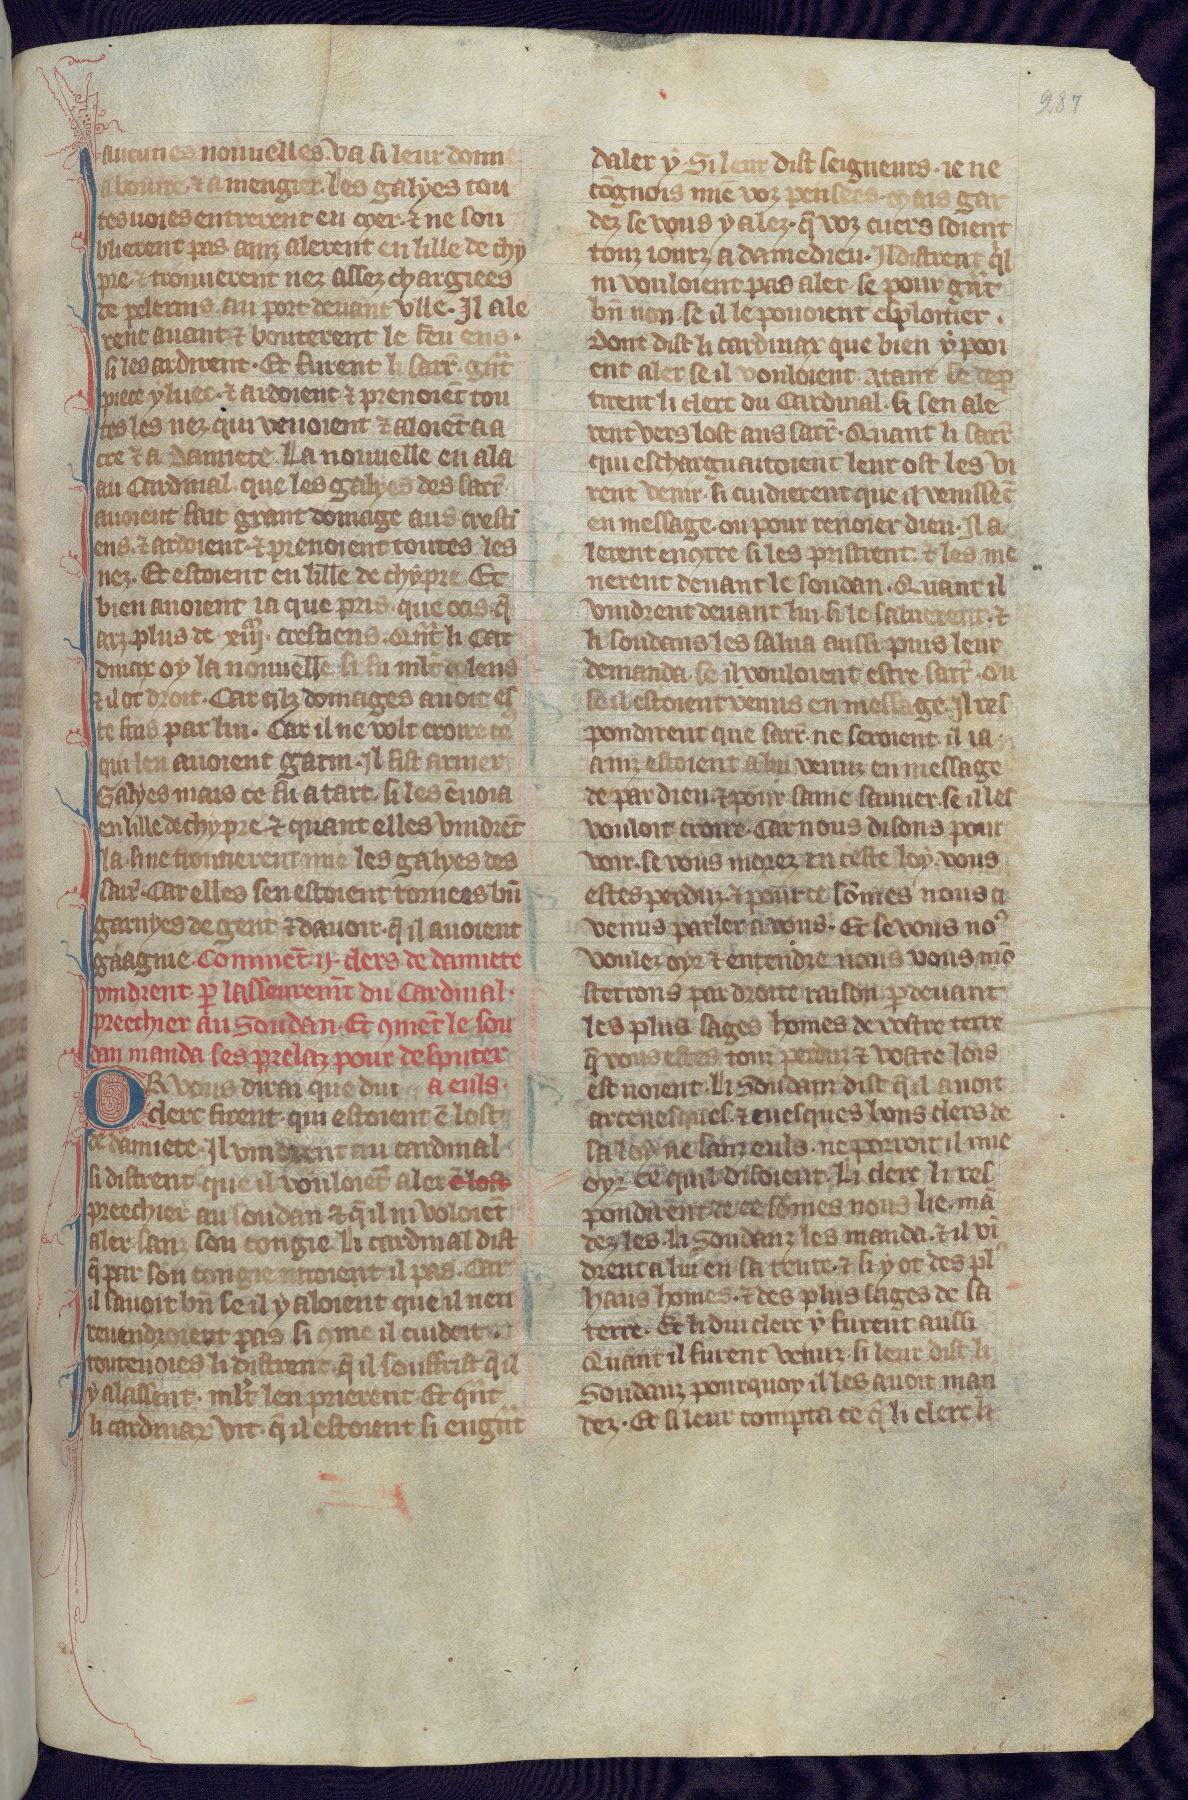 287
aucunes nouuelles. va si leur donne
a boiure. ⁊ a mengier. les galyes tou
tes uoies entrerent en mer. ⁊ ne sou
blierent pas ainz alerent en lille de chy
pre ⁊ trouuerent nez assez chargiees
de pelerins au port deuant ville. Il ale
rent auant ⁊ bouterent le feu ens.
si les ardirent. Et furent li sarr̄. gr̄nt
piece yluec. ⁊ ardoient ⁊ prenoiēt tou
tes les nez qui venoient ⁊ aloiēt a a
cre ⁊ a Damiete. La nouuelle en ala
au Cardinal. que les galyes des sarr̄.
auoient fait grant domage aus cresti
ens. ⁊ ardoient. ⁊ prenoient toutes les
nez. Et estoient en lille de chypre. Et
bien auoient ia que pris. que ocis. q̄
arz. plus de .xiiij. crestiens. Qn̄t li Car
dinax oy la nouuelle. si fu ml̄t dolens
⁊ il ot droit. Car cilz domages auoit es
te fais par lui. Car il ne volt croire ce
qui len auoient garni. Il fist armer
Galyes mais ce fu a tart. si les ēuoia
en lille de chypre. ⁊ quant elles vindrēt
la. si ne trouuerent mie les galyes des
sarr̄. Car elles sen estoient tornees bn̄
garnyes de gent ⁊ dauoir. q̄ il auoient
gaagnie. Commēt .ij. clers de damiete
vindrent. ꝑ lasseurem̄t du Cardinal.
preechier au Soudan. Et ꝯmēt le sou
dan manda ses prelaz pour desputer
OR vous dirai que dui a euls.
clerc furent. qui estoient ē lost
de damiete. Il vindrent au cardinal.
si distrent. que il vouloiēt aler ē lost
preechier au soudan ⁊ q̄ il ni voloiēt
aler sanz son congie. Li cardinal dist
q̄ par son congie niroient il pas. Car
il sauoit bn̄ se il y aloient que il nen
reuendroient pas si ꝯme il cuidoit.
toutenoies li distrent. q̄ il souffrist q̄ il
y alassent. ml̄t len prierent. Et qn̄t
li cardinax vit. q̄ il estoient si engr̄nt
daler y. Si leur dist seigneurs. ie ne
cōgnois mie voz pensees. mais gar
dez se vous y alez. q̄ voz cuers soient
touz iourz a damedieu. Il distrent q̄l
ni vouloient pas aler se pour gr̄nt
bn̄ non. se il le pouoient esploitier.
Dont dist li cardinax que bien y pooi
ent aler se il vouloient. Atant se dep̄
tirent li clerc du Cardinal. si sen ale
rent vers lost aus sarr̄. Quant li sarr̄
qui eschargaitoient leur ost les vi
rent venir. si cuidierent que il venissēt
en message. ou pour renoier dieu. Il a
lerent encōtre si les pristrent. ⁊ les me
nerent deuant le soudan. Quant il
vindrent deuant lui. si le saluerent. ⁊
li soudans les salua aussi. puis leur
demanda. se il vouloient estre sarr̄. Ou
se il estoient venus en message. Il res
pondirent que sarr̄. ne seroient il ia.
ainz estoient a lui venuz en message
de par dieu. ⁊ pour same sauuer. se il les
vouloit croire. Car nous disons pour
voir. se vous morez en ceste loy. vous
estes perduz. ⁊ pour ce sōmes nous ci
venus parler a vous. Et se vous noꝰ
voulez oyr ⁊ entendre nous vous mō
sterrons par droite raison. ꝑ deuant
les plus sages homes de vostre terre
q̄ vous estes touz perduz ⁊ vostre lois
est noient. Li Soudanz dist q̄ il auoit
arceuesques. ⁊ euesques bons clers de
sa loy. ne sanz euls. ne porroit il mie
oyr ce quil disoient. Li clerc li res
pondirent de ce sōmes nous lie. mā
dez les. Li Soudanz les manda. ⁊ il vī
drent a lui en sa tente. ⁊ si y ot des plꝰ
haus homes. ⁊ des plus sages de sa
terre. Et li dui clerc y furent aussi.
Quant il furent venuz. si leur dist li
Soudanz pourquoy il les auoit man
dez. Et si leur compta ce q̄ li clerc li